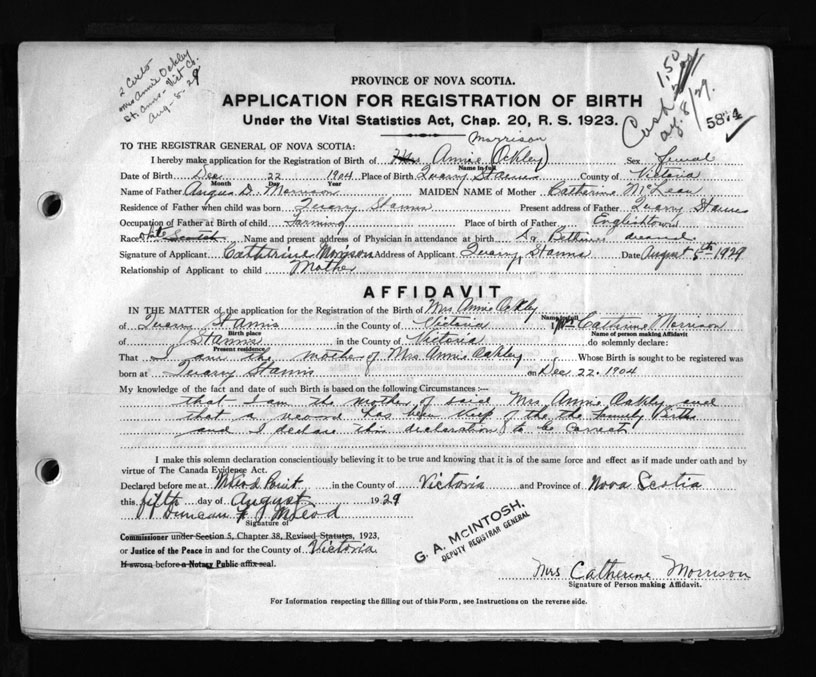 2 Certs
Mrs Annie Oakley
St. Anns - Vict Co.
Aug-8-29
Cash 1.50
Ag. 8/29.
5874
PROVINCE OF NOVA SCOTIA.
APPLICATION FOR REGISTRATION OF BIRTH
Under the Vital Statistics Act, Chap. 20, R. S. 1923.
TO THE REGISTRAR GENERAL OF NOVA SCOTIA:
Morrison
I hereby make application for the Registration of Birth of Mrs. Annie (Ockley) Sex Femal
Name in full
Date of Birth Dec 22 1904 Place of Birth Quarry St Anns County of Victoria
Month Day Year
Name of Father Angus D. Morrison MAIDEN NAME of Mother Catherine McLean
Residence of Father when child was born Quarry St anns Present address of Father Quarry St anns
Occupation of Father at Birth of child Farming Place of birth of Father Englishtown
Race Scotch Name and present address of Physician in attendance at birth Dr Bethune
Signature of Applicant Cathtrine Morrison Address of Applicant Quarry, St anns Date August 5th 1929
Relationship of Applicant to child Mother
AFFIDAVIT
IN THE MATTER of the application for the Registration of the Birth of Mrs Annie Oakly
Name in full
of Quarry St Anns in the County of Victoria I, Mrs Catherine Morrison
Birth place Name of person making Affidavit
of St anns in the County of Victoria do solemnly declare:
Present residence
That I am the mother of Mrs Annie Oakley Whose Birth is sought to be registered was
born at Quarry St anns on Dec 22. 1904
My knowledge of the fact and date of such Birth is based on the following Circumstances :—
that I am the mother of said Mrs Annie Oakly and
that a record has been keep of the the family Birth
and I declare this declaration to be correct
I make this solemn declaration conscientiously believing it to be true and knowing that it is of the same force and effect as if made under oath and by
virtue of The Canada Evidence Act.
Declared before me at McLeod Point in the County of Victoria and Province of Nova Scotia
this fifth day of August 1929
Duncan F J McLeod
Signature of
Commissioner under Section 5, Chapter 38, Revised Statutes, 1923,
or Justice of the Peace in and for the County of Victoria
If sworn before a Notary Public affix seal.
G. A. McINTOSH,
DEPUTY REGISTRAR GENERAL
Mrs Catherine Morrison
Signature of Person making Affidavit.
For Information respecting the filling out of this Form, see Instructions on the reverse side.